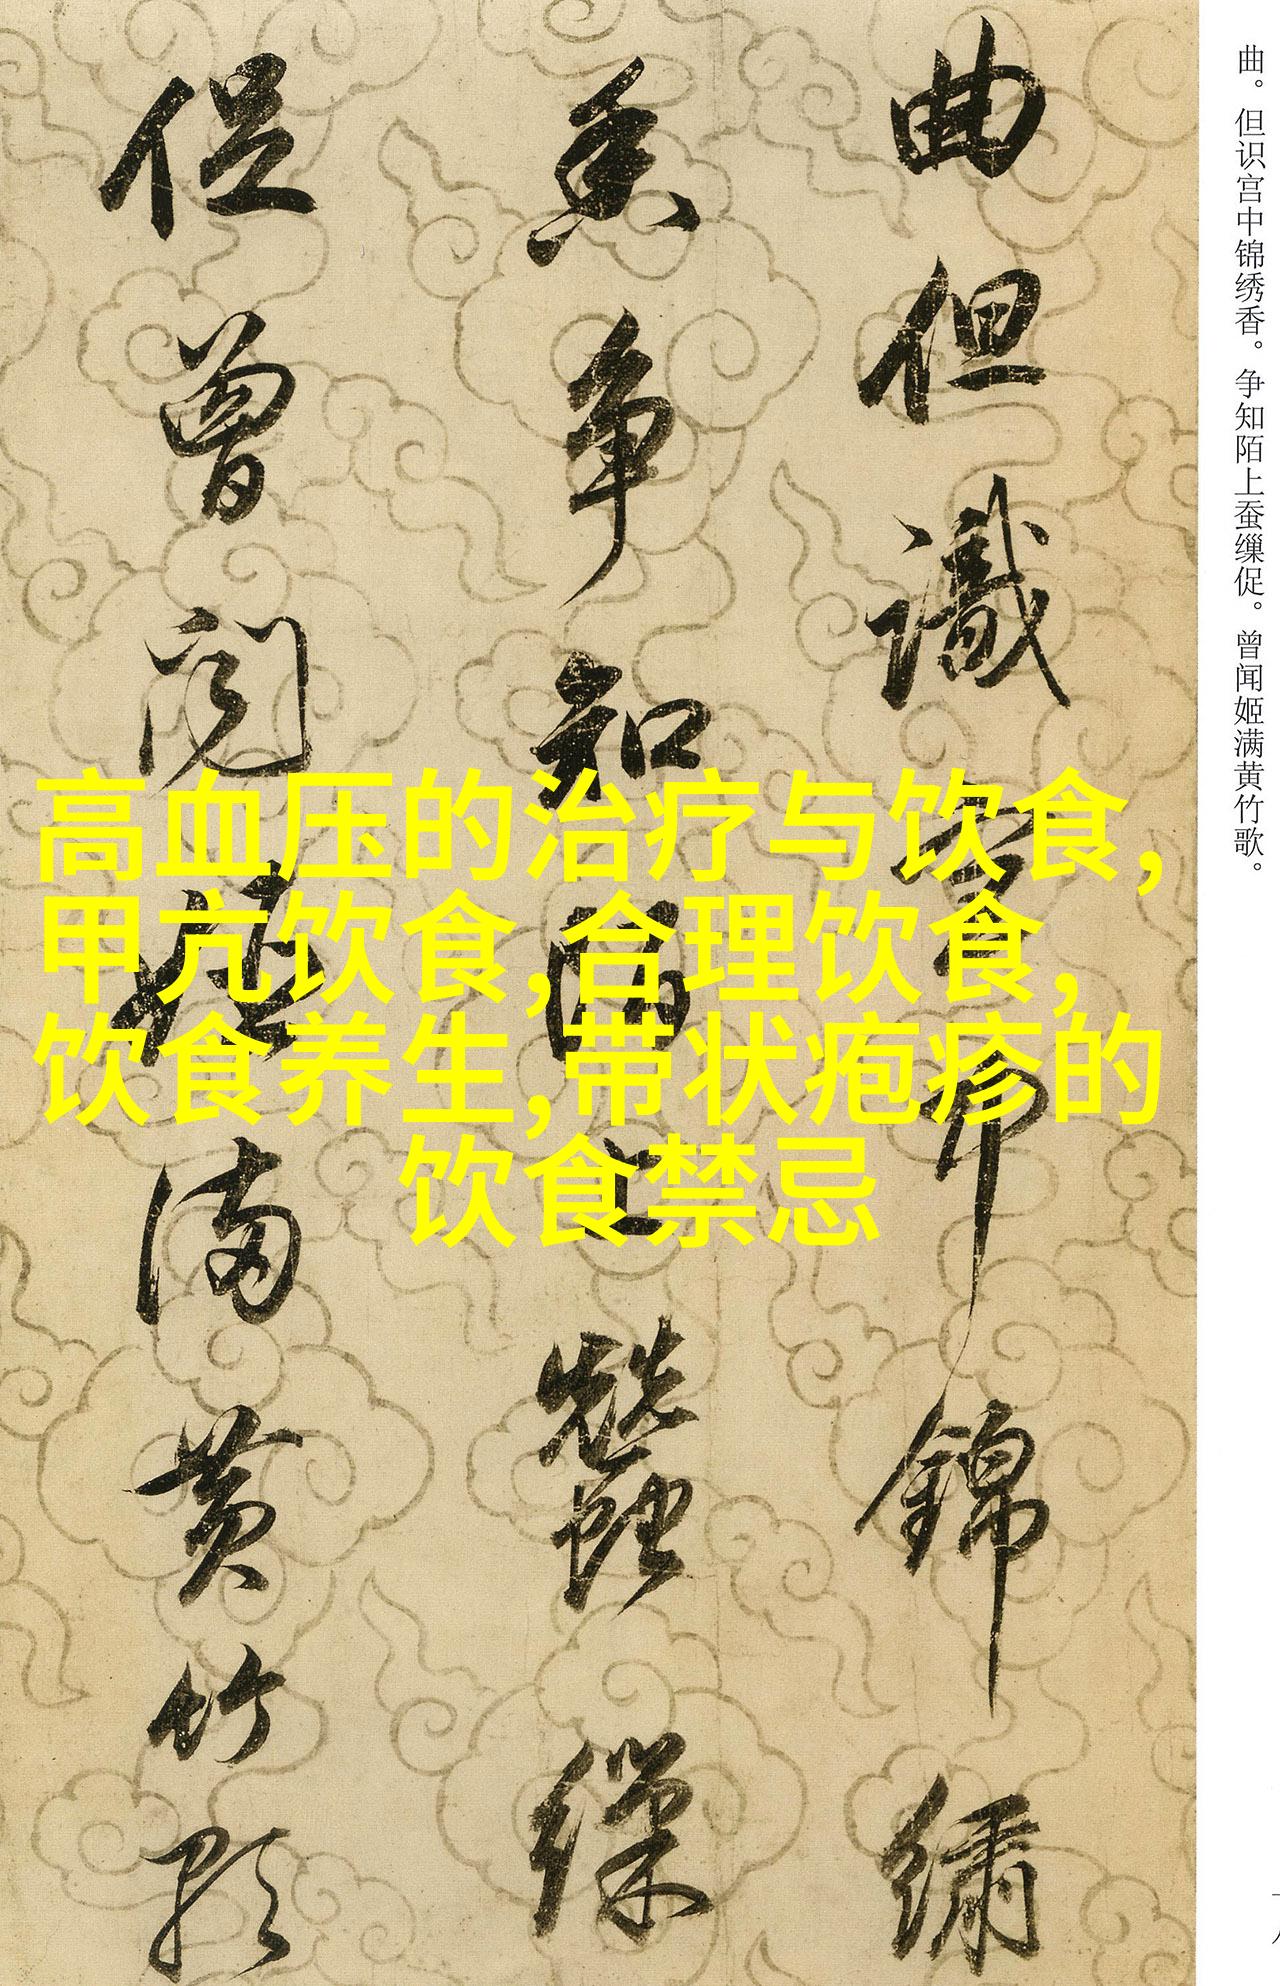 曲。但识宫中锦绣香。争知陌上蚕缫促。曾闻姬满黄竹歌。
曲但識宮中錦繡
香争知陌上蠶繅
促曾聞姬滿黄竹歌
高血压的治疗与饮食,
甲亢饮食,合理饮食,
饮食养生,带状疱疹的
饮食禁忌